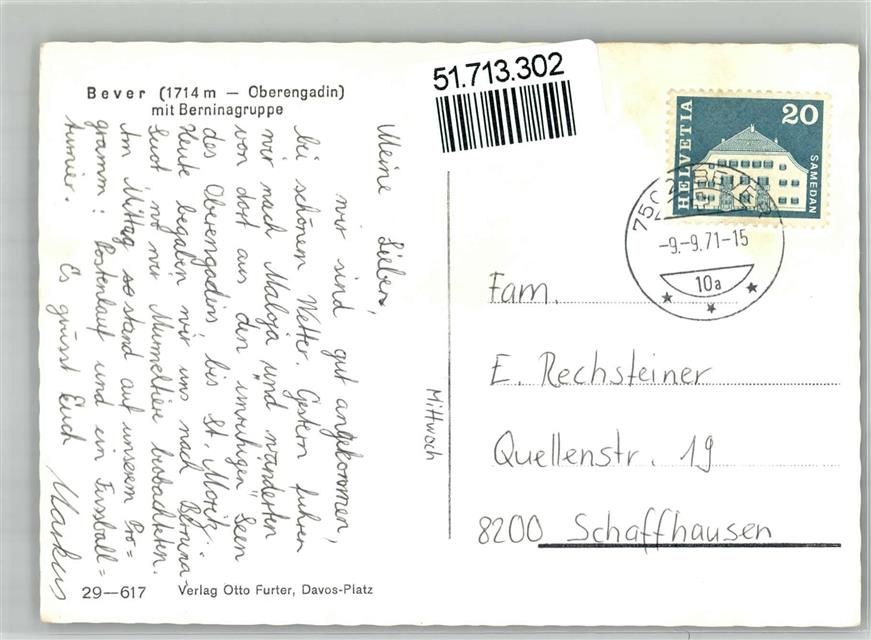 Bever (1714 m — Oberengadin)
mit Berninagruppe
51.713.302
HELVETIA
20
SAMEDAN
-9.-9.71-15
10a
Meine Lieben,
wir sind gut angekommen,
bei schönem Wetter. Gestern fuhren
wir nach Maloja und wanderten
von dort aus den "unruhigen" Seen
des Oberengadins bis St. Moritz.
Heute begaben wir uns nach Bernina-
Suot wo wir Murmeltiere beobachteten.
Am Mittag stand auf unserem Pro=
gramm: Postenlauf und ein Fussball=
turnier. Es grüsst Euch
Markus
Mittwoch
Fam.
E. Rechsteiner
Quellenstr. 19
8200 Schaffhausen
29—617 Verlag Otto Furter, Davos-Platz